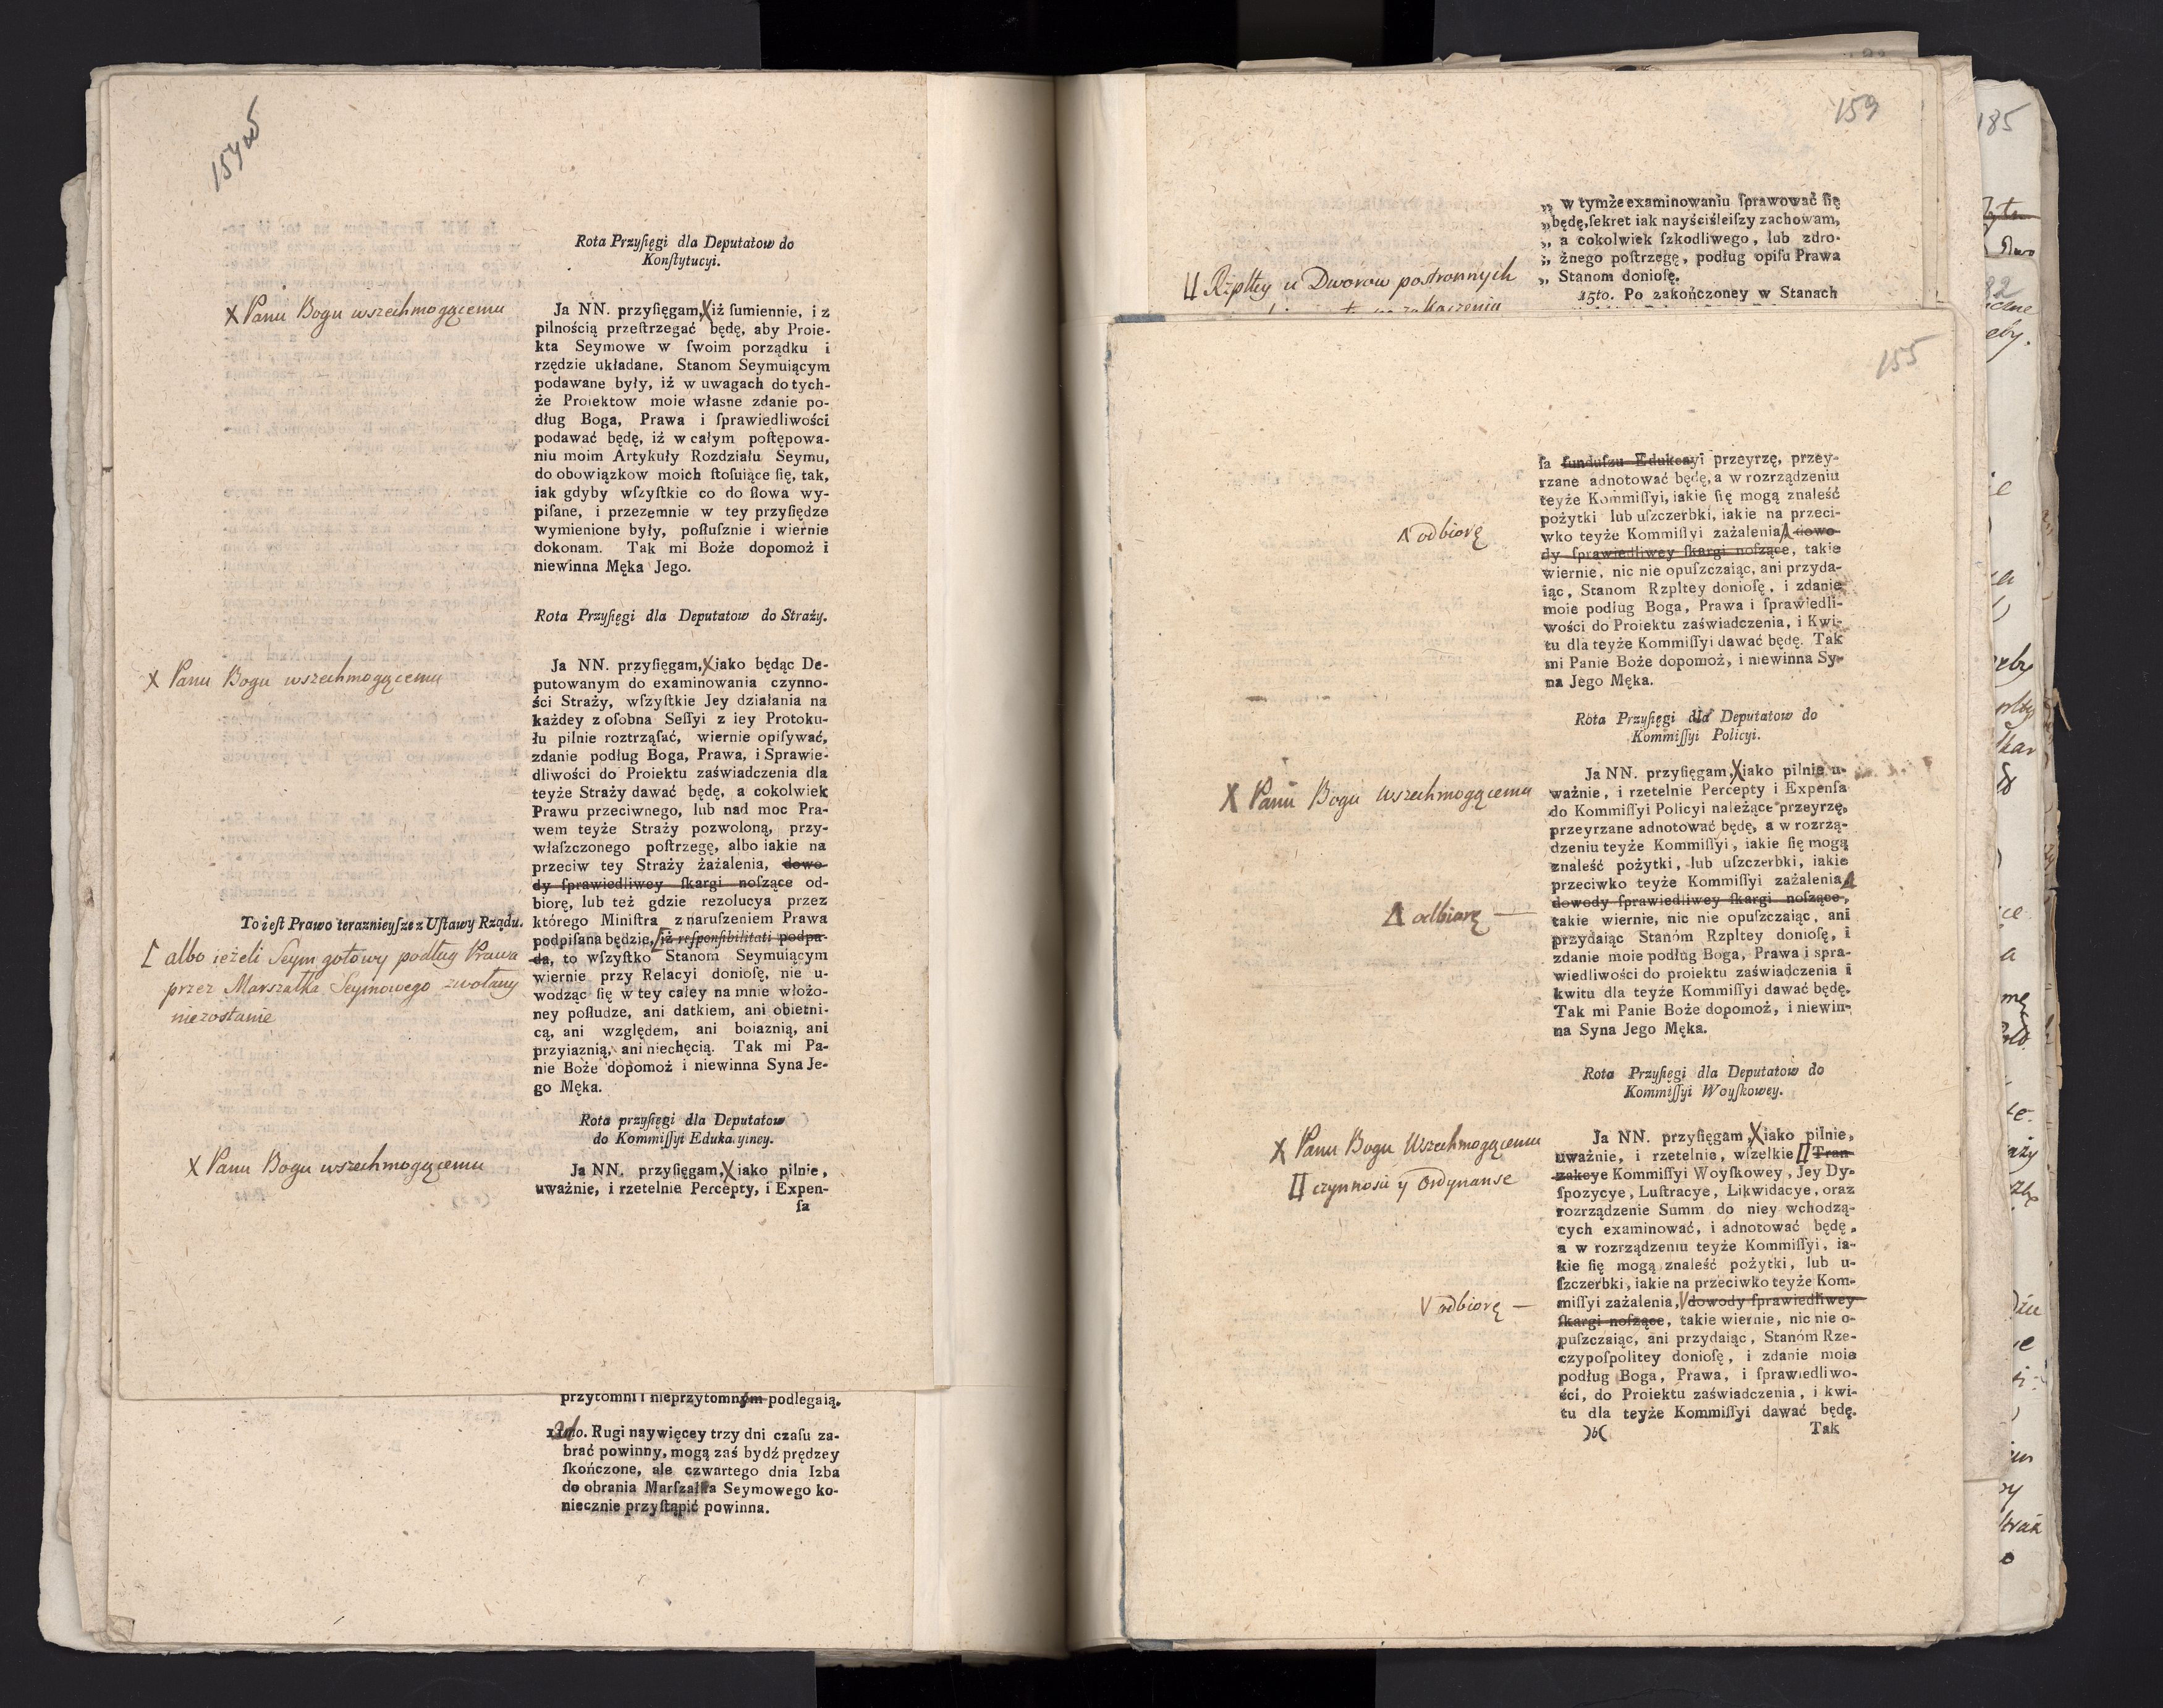 Rota Przyſięgi dla Deputatow do
Konſtytucyi.
X Panu Bogu wszechmogącemu
Ja NN. przyſięgam,X iż ſumiennie, i z
pilnością przeſtrzegać będę, aby Proie-
kta Seymowe w ſwoim porządku i
rzędzie układane, Stanom Seymuiącym
podawane były, iż w uwagach do tych-
że Proiektow moie własne zdanie po-
dług Boga, Prawa i ſprawiedliwości
podawać będę, iż w całym poſtępowa-
niu moim Artykuły Rozdziału Seymu,
do obowiązkow moich ſtoſuiące ſię, tak,
iak gdyby wſzyſtkie co do ſłowa wy-
piſane, i przezemnie w tey przyſiędze
wymienione były, poſłuſznie i wiernie
dokonam. Tak mi Boże dopomoż i
niewinna Męka Jego.
Rota Przyſięgi dla Deputatow do Straży.
X Panu Bogu wszechmogącemu
Ja NN. przyſięgam,X iako będąc De-
putowanym do examinowania czynno-
ści Straży, wſzyſtkie Jey działania na
każdey z oſobna Seſſyi z iey Protoku-
łu pilnie roztrząſać, wiernie opiſywać,
zdanie podług Boga, Prawa, i Sprawie-
dliwości do Proiektu zaświadczenia dla
teyże Straży dawać będę, a cokolwiek
Prawu przeciwnego, lub nad moc Pra-
wem teyże Straży pozwoloną, przy-
właſzczonego poſtrzegę, albo iakie na
przeciw tey Straży żażalenia, dowo-
dy ſprawiedliwey ſkargi noſzące od-
biorę, lub też gdzie rezolucya przez
To ieſt Prawo teraznieyſze z Uſtawy Rządu.
którego Miniſtra z naruſzeniem Prawa
podpiſana będzie,[ iż reſponſibilitati podpa-
[ albo ieżeli Seym gotowy podług Prawa
przez Marszałka Seymowego zwołany
niezostanie
da, to wſzyſtko Stanom Seymuiącym
wiernie przy Relacyi donioſę, nie u-
wodząc ſię w tey całey na mnie włożo-
ney poſłudze, ani datkiem, ani obietni-
cą, ani względem, ani boiaznią, ani
przyiaznią, ani niechęcią. Tak mi Pa-
nie Boże dopomoż i niewinna Syna Je-
go Męka.
Rota przyſięgi dla Deputatow
do Kommiſſyi Eduka yiney.
X Panu Bogu wszechmogącemu
Ja NN. przyſięgam,X iako pilnie,
uważnie, i rzetelnie Percepty, i Expen-
ſa
przytomni i nieprzytomnym podlegaią.
Rugi naywięcey trzy dni czaſu za-
brać powinny, mogą zaś bydź prędzey
ſkończone, ale czwartego dnia Izba
do obrania Marſzałka Seymowego ko-
niecznie przyſtąpić powinna.
159
„ w tymże examinowaniu ſprawować ſię
„ będę, ſekret iak nayściśleiſzy zachowam,
„ a cokolwiek ſzkodliwego, lub zdro-
„ żnego poſtrzegę, podług opiſu Prawa
„ Stanom donioſę.
[] Rzpltey u Dworow postronnych
15to. Po zakończoney w Stanach
155
ſa funduſzu Edukcayi przeyrzę, przey-
rzane adnotować będę, a w rozrządzeniu
teyże Kommiſſyi, iakie ſię mogą znaleść
pożytki lub uſzczerbki, iakie na przeci-
Λ odbiorę
wko teyże Kommiſſyi zażaleniaΛ dowo-
dy ſprawiedliwey ſkargi noſzące, takie
wiernie, nic nie opuſzczaiąc, ani przyda-
iąc, Stanom Rzpltey donioſę, i zdanie
moie podług Boga, Prawa i ſprawiedli-
wości do Proiektu zaświadczenia, i Kwi-
tu dla teyże Kommiſſyi dawać będę. Tak
mi Panie Boże dopomoż, i niewinna Sy-
na Jego Męka.
Rota Przyſięgi dla Deputatow do
Kommiſſyi Policyi.
X Panu Bogu wszechmogącemu
Ja NN. przyſięgam,X iako pilnie u-
ważnie, i rzetelnie Percepty i Expenſa
do Kommiſſyi Policyi należące przeyrzę,
przeyrzane adnotować będę, a w rozrzą-
dzeniu teyże Kommiſſyi, iakie ſię mogą
znaleść pożytki, lub uſzczerbki, iakie
przeciwko teyże Kommiſſyi zażaleniaΛ
dowody ſprawiedliwey ſkargi noſzące,
Λ odbiorę —
takie wiernie, nic nie opuſzczaiąc, ani
przydaiąc Stanóm Rzpltey donioſę, i
zdanie moie podług Boga, Prawa i spra-
wiedliwości do proiektu zaświadczenia i
kwitu dla teyże Kommiſſyi dawać będę.
Tak mi Panie Boże dopomoż, i niewin-
na Syna Jego Męka.
Rota Przyſięgi dla Deputatow do
Kommiſſyi Woyſkowey.
X Panu Bogu Wszechmogącemu
Ja NN. przyſięgam,X iako pilnie,
uważnie, i rzetelnie, wſzelkie [] Tran-
[] czynności y Ordynanse
zakcye Kommiſſyi Woyſkowey, Jey Dy-
ſpozycye, Luſtracye, Likwidacye, oraz
rozrządzenie Summ do niey wchodzą-
cych examinować, i adnotować będę,
a w rozrządzeniu teyże Kommiſſyi, ia-
kie ſię mogą znaleść pożytki, lub u-
ſzczerbki, iakie na przeciwko teyże Kom-
V odbiorę —
miſſyi zażalenia,V dowody ſprawiedliwey
ſkargi noſzące, takie wiernie, nic nie o-
puſzczaiąc, ani przydaiąc, Stanóm Rze-
czypoſpolitey donioſę, i zdanie moie
podług Boga, Prawa, i ſprawiedliwo-
ści, do Proiektu zaświadczenia, i kwi-
tu dla teyże Kommiſſyi dawać będę.
)b( Tak
185